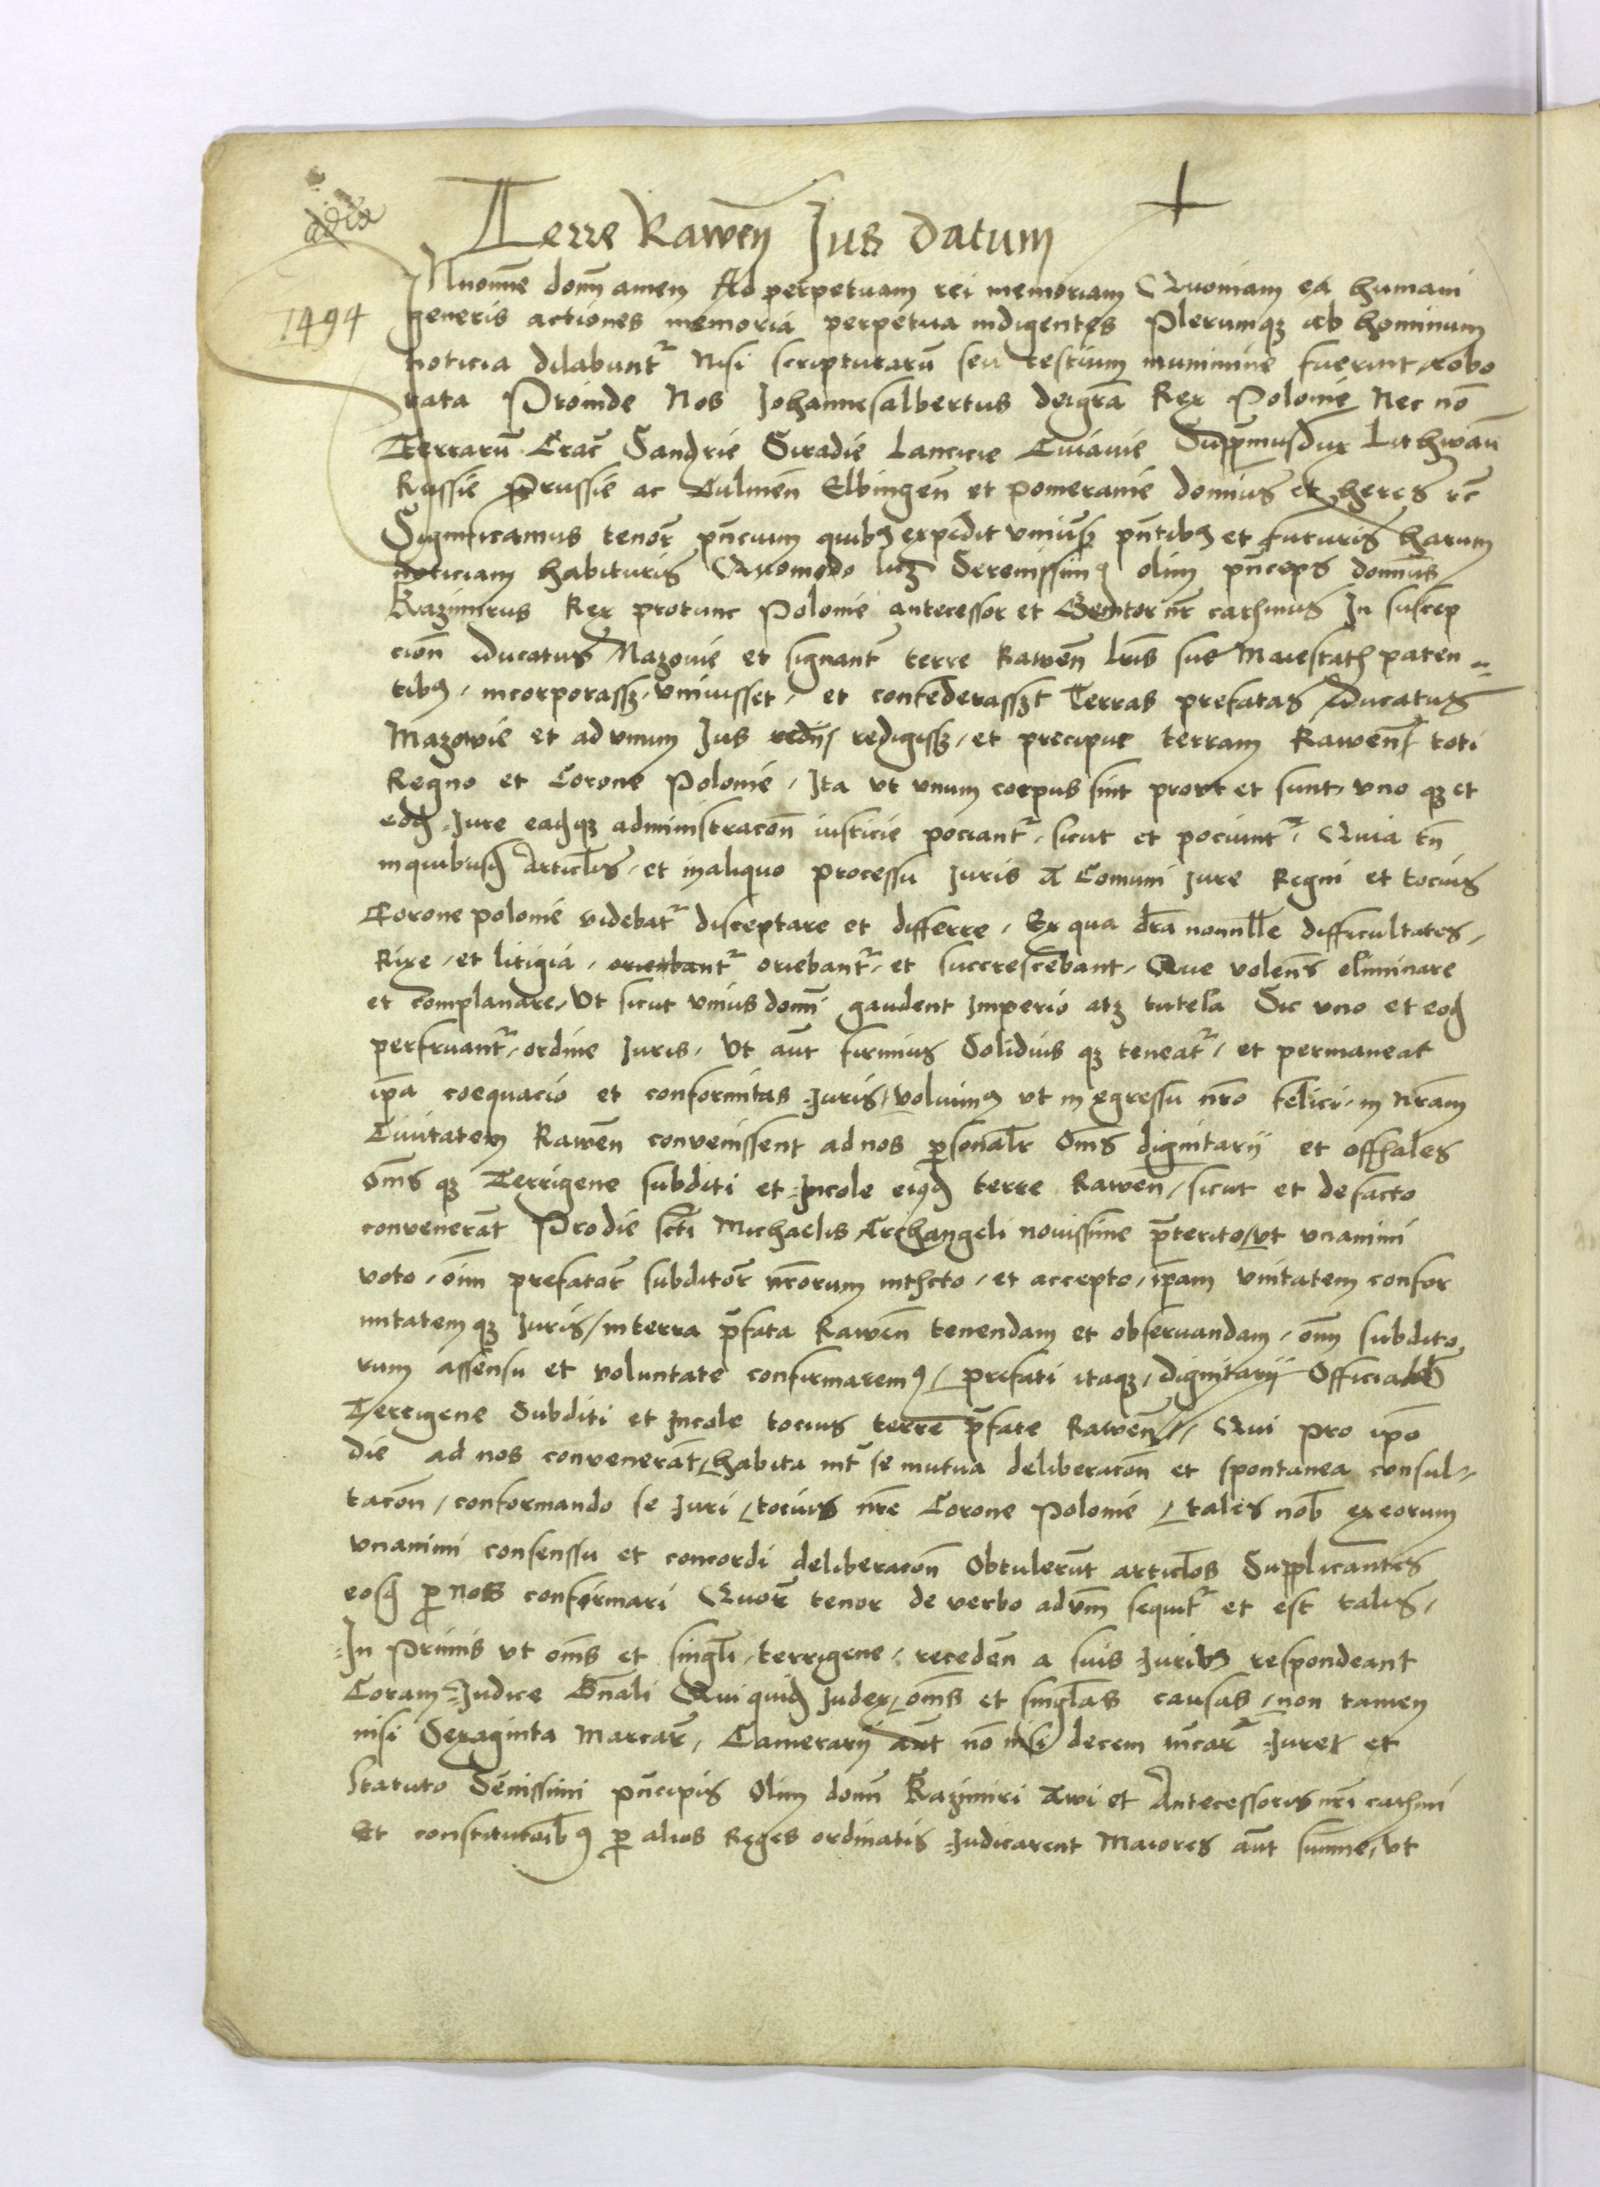 Terre Rawen̄ Jus Datum
1494
Jn noīne domī amen Ad perpetuam rei memoriam Quoniam ea humani
generis actiones memoria perpetua indigentes Plerumqꝫ ab hominum
noticia dilabuntʳ Nisi scripturarū seu testium munimine fuerint robo
rata Proinde Nos Johannesalbertus deigrā Rex Polonie Nec nō
Terrarū Crac̄ Sandrie Siradie Lancicie Cuiavie Supp̄musdux Lithwan̄
Russie Prussie ac Culmen̄ Elbingen̄ et pomeranie dominus et heres rc̄
Significamus tenor̄ pn̄cium quibꝫ expedit vniūs pn̄tibꝫ et futuris harum
noticiam habituris Quomodo licꝫ Serenissimꝰ olim pn̄ceps domin̄us
Kazimirus Rex protunc Polonie antecessor et Genitor nr̄ carissimus In suscep
cion̄ ducatus Mazovie et signant̄ terre Rawen̄ lr̄is sue Maiestatis paten=
tibꝫ, incorporassꝫ, vniuisset, et confederassꝫt Terras prefatas ducatus
Mazovie et ad vnum Jus redigissꝫ, et precipue terram Rawen̄ toti
Regno et Corone Polonie, Ita vt vnum corpus sint prout et sunt, vno qꝫ et
eodꝫ Jure eadꝫqꝫ administracōn iusticie pociantʳ, sicut et pociuntʳ, Quia tn̄
inquibusdꝫ Articl̄is, et inaliquo processu Juris A Comuni Jure Regni et tocius
Corone polonie videbatʳ disceptare et differre, Ex qua dr̄a nonnll̄e difficultates,
Rixe, et litigia, orienbantʳ oriebantʳ, et succrescebant, Que volens̄ eliminare
et complanare, Vt sicut vnius domī gaudent Imperio atqꝫ tutela Sic vno et eodꝫ
perfruantʳ, ordine Juris, Vt aūt firmius Solidius qꝫ teneatʳ, et permaneat
ip̄a coequacio et conformitas Juris, voluimꝰ vt in egressu nr̄o felici, in Nr̄am
Civitatem Rawen̄ convenissent ad nos p̱sonalr̄ Om̄s dignitarij et offīales
Om̄s qꝫ Terrigene subditi et Incole eiusdꝫ terre Rawen̄, sicut et defacto
convenerāt Prodie scti Michaelis Archangeli novissime pr̄terito, vt vnanimi
voto, oīm prefator̄ subditor̄ nr̄orum et accepto, ip̄am vnitatem confor
mitatem qꝫ Juris, interra pr̄fata Rawen̄ tenendam et observandam, oīm subdito,
rum assensu et voluntate confirmaremꝰ, prefati itaqꝫ, dignitarij Officiales
Terrigene Subditi et Incole tocius terre pr̄fate Rawen̄, Qui pro ip̄o
die ad nos convenerāt, habita int̄ se mutua deliberacōn et spontanea consul=
tacōn, conformando se Juri, tocius nr̄e Corone Polonie, tales nob̄ ex eorum
vnanimi consenssu et concordi deliberacōn Obtulerūt articl̄os Supplicantes
eosdꝫ ꝑ nos confirmari Quor̄ tenor de verbo adv̄m sequitʳ et est talis,
In Primis vt om̄s et singl̄i, terrigene, receden̄ a suis Juribꝫ respondeant
Coram Judice Gn̄ali Qui quidꝫ Judex, om̄s et singl̄as causas, non tamen
nisi Sexaginta Marcar̄, Camerarij aūt nō nisi decem mr̄car̄ Juret et
Statuto Sēnissimi pn̄cipis Olim domī Kazimiri Awi et Antecessoris nr̄i carissimi
Et constitutoib̄ꝰ ꝑ alios Reges ordinatis Judicarent Maiores aūt summe, vt